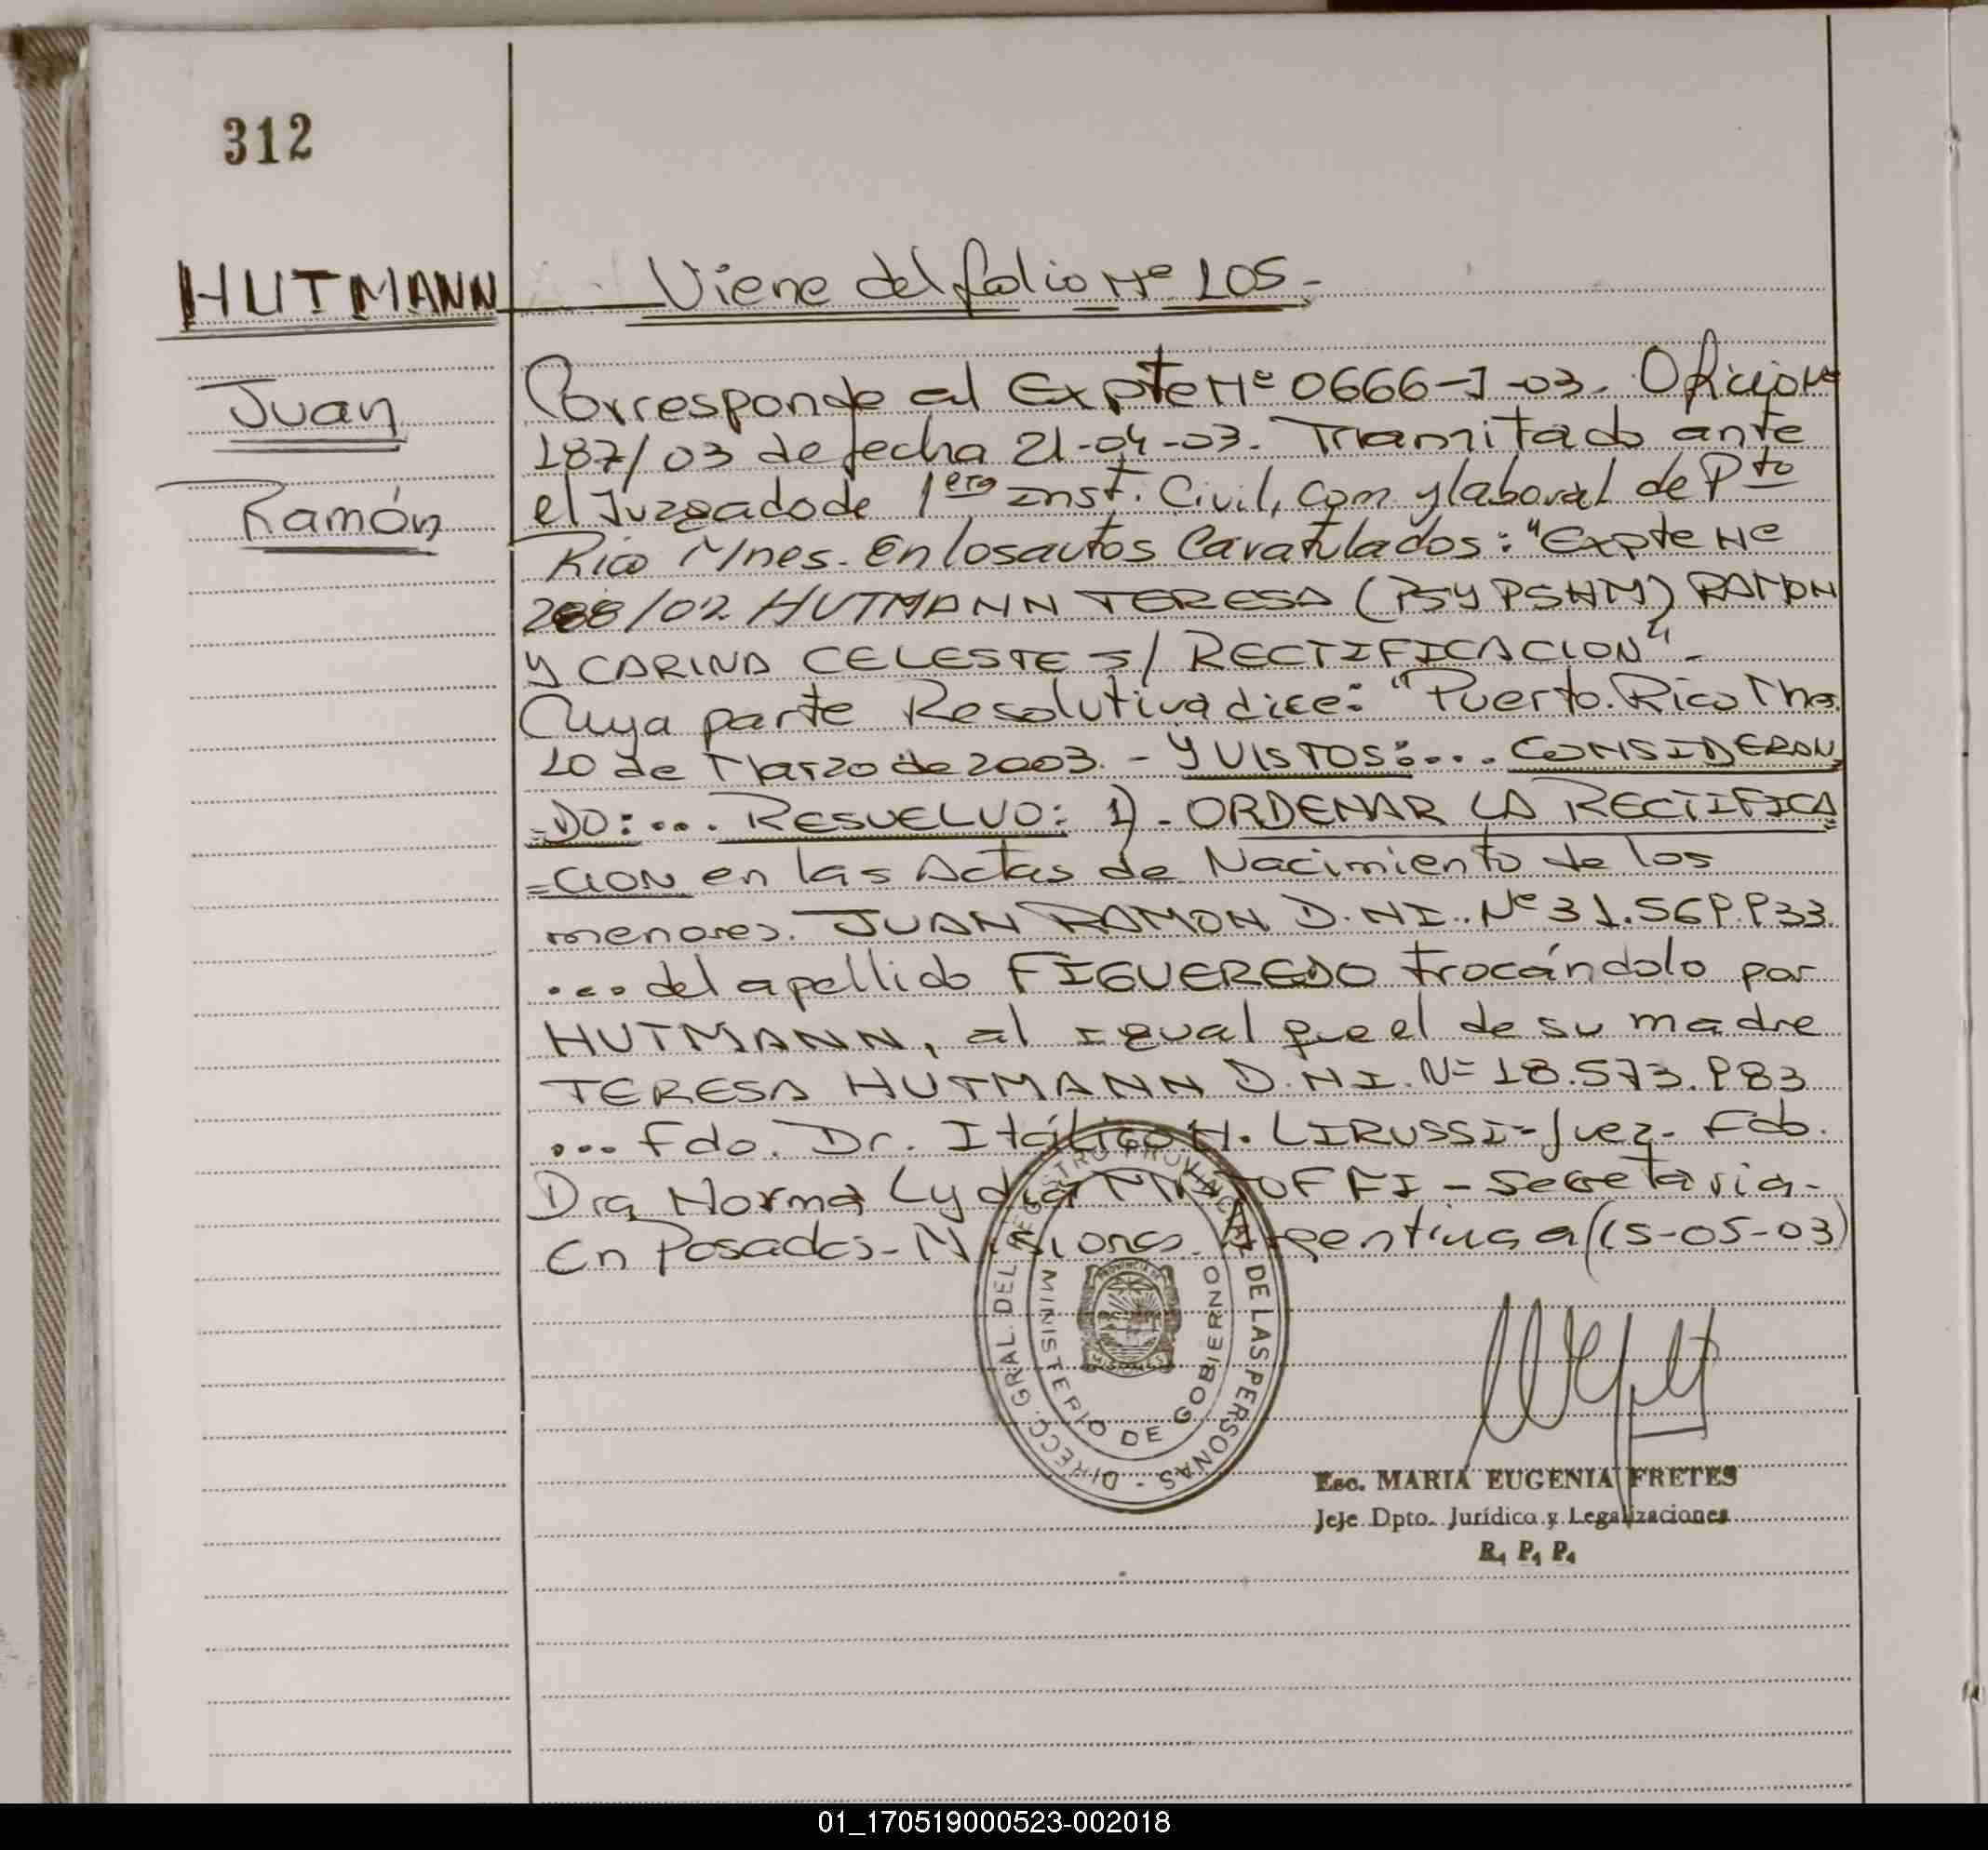 312
HUTMANN
Juan
Ramón
Viene del folio Nº 105.-
Corresponde al Expte Nº 0666-J-03. Oficio Nº
187/03 de fecha 21-04-03. Tramitado ante
el Juzgado de 1era Inst. Civil, Com y laboral de Pto
Rico Mnes. En los autos Caratulados: "Expte Nº
288/02 HUTMANN TERESA (PSYPSHM) RAMON
Y CARINA CELESTE S/ RECTIFICACION".-
Cuya parte Resolutiva dice: "Puerto Rico Mnes.
10 de Marzo de 2003.- Y VISTOS:... CONSIDERAN
=DO:... RESUELVO: 1)- ORDENAR LA RECTIFICA
=CION en las Actas de Nacimiento de los
menores. JUAN RAMON D.N.I. Nº 31.569.933.
... del apellido FIGUEREDO trocándolo por
HUTMANN, al igual que el de su madre
TERESA HUTMANN D.N.I. Nº 18.573.983
... Fdo. Dr. Itálico H. LIRUSSI-Juez- Fdo.
Dra Norma Lydia - Secretaria-
En Posadas- Misiones. Argentina a (15-05-03)
DIRECC. GRAL. DEL REGISTRO PROVINCIAL DE LAS PERSONAS -
MINISTERIO DE GOBIERNO
PROVINCIA DE
MISIONES
Esc. MARIA EUGENIA FRETES
Jefe Dpto. Jurídico y Legalizaciones
R. P. P.
01_170519000523-002018